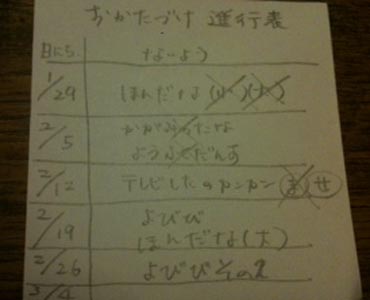 おかたづけ 進行表
日にち ないよう
1/29 ほんだな(小)(大)
2/5 かがみのたな
ようふくだんす
2/12 テレビしたのカンカン ま せ
2/19 よびび
ほんだな(大)
2/26 よびびその2
3/4